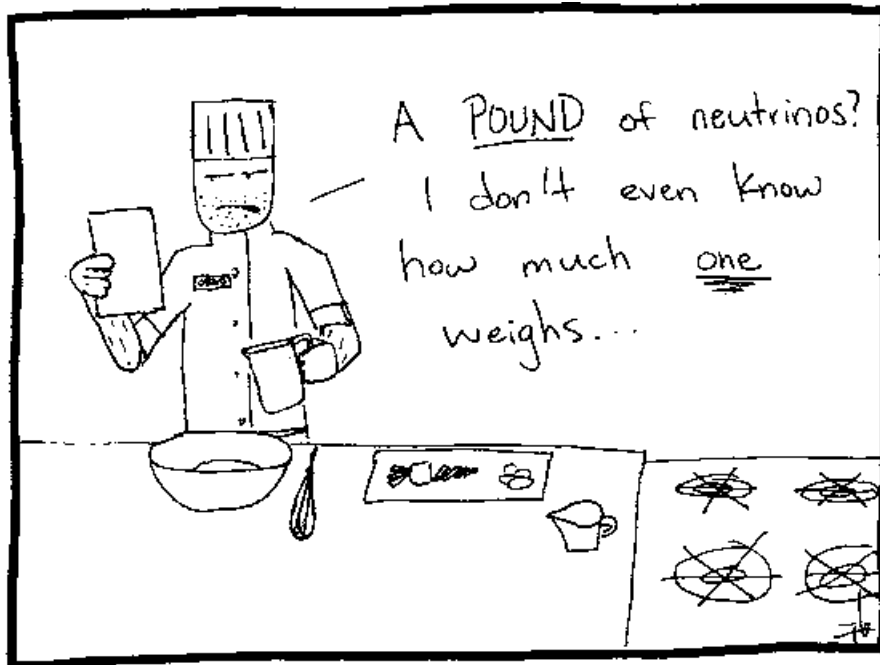 A POUND of neutrinos?
I don't even know
how much one
weighs...